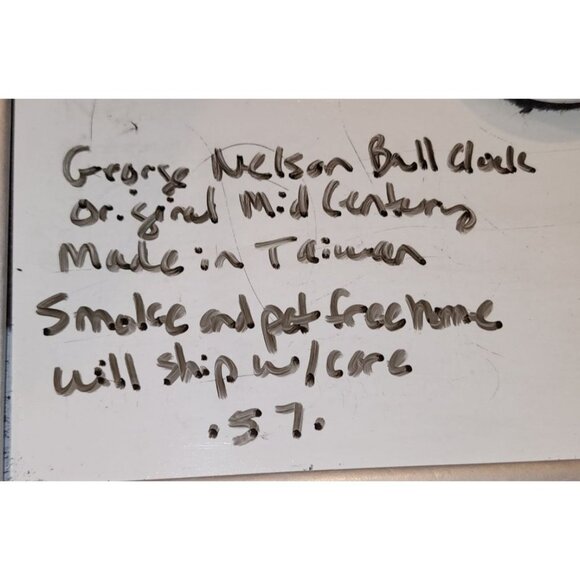 George Nelson Ball Clock
Original Mid Century
Made in Taiwan
Smoke and pet free home
will ship w/care
.57.